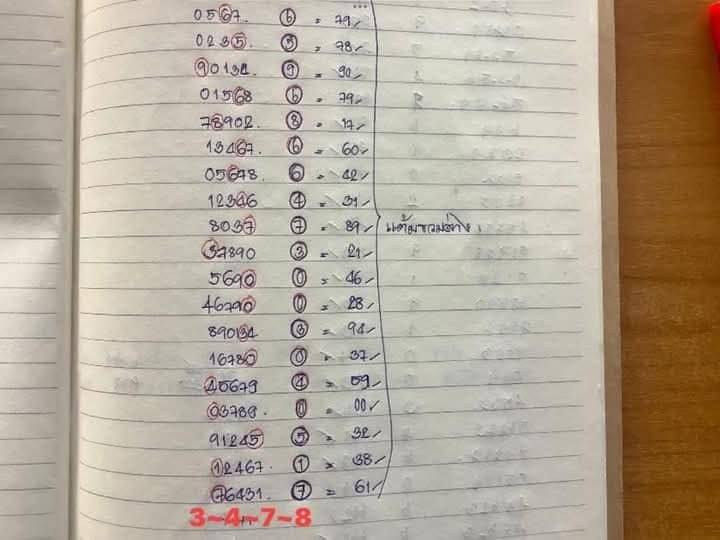 0567. 6 = 79✓
0235. 5 = 78✓
90134. 9 = 90✓
01568 6 = 79✓
78902. 8 = 17✓
13467. 6 = 60✓
05678. 6 = 42✓
12346 4 = 31✓
8037 7 = 89✓
37890 3 = 21✓
5690 0 = 46✓
46790 0 = 28✓
890134 3 = 94✓
16780 0 = 37✓
45679 4 = 59✓
03789. 0 = 00✓
91245 5 = 32✓
12467. 1 = 38✓
76431. 7 = 61✓
3~4~7~8